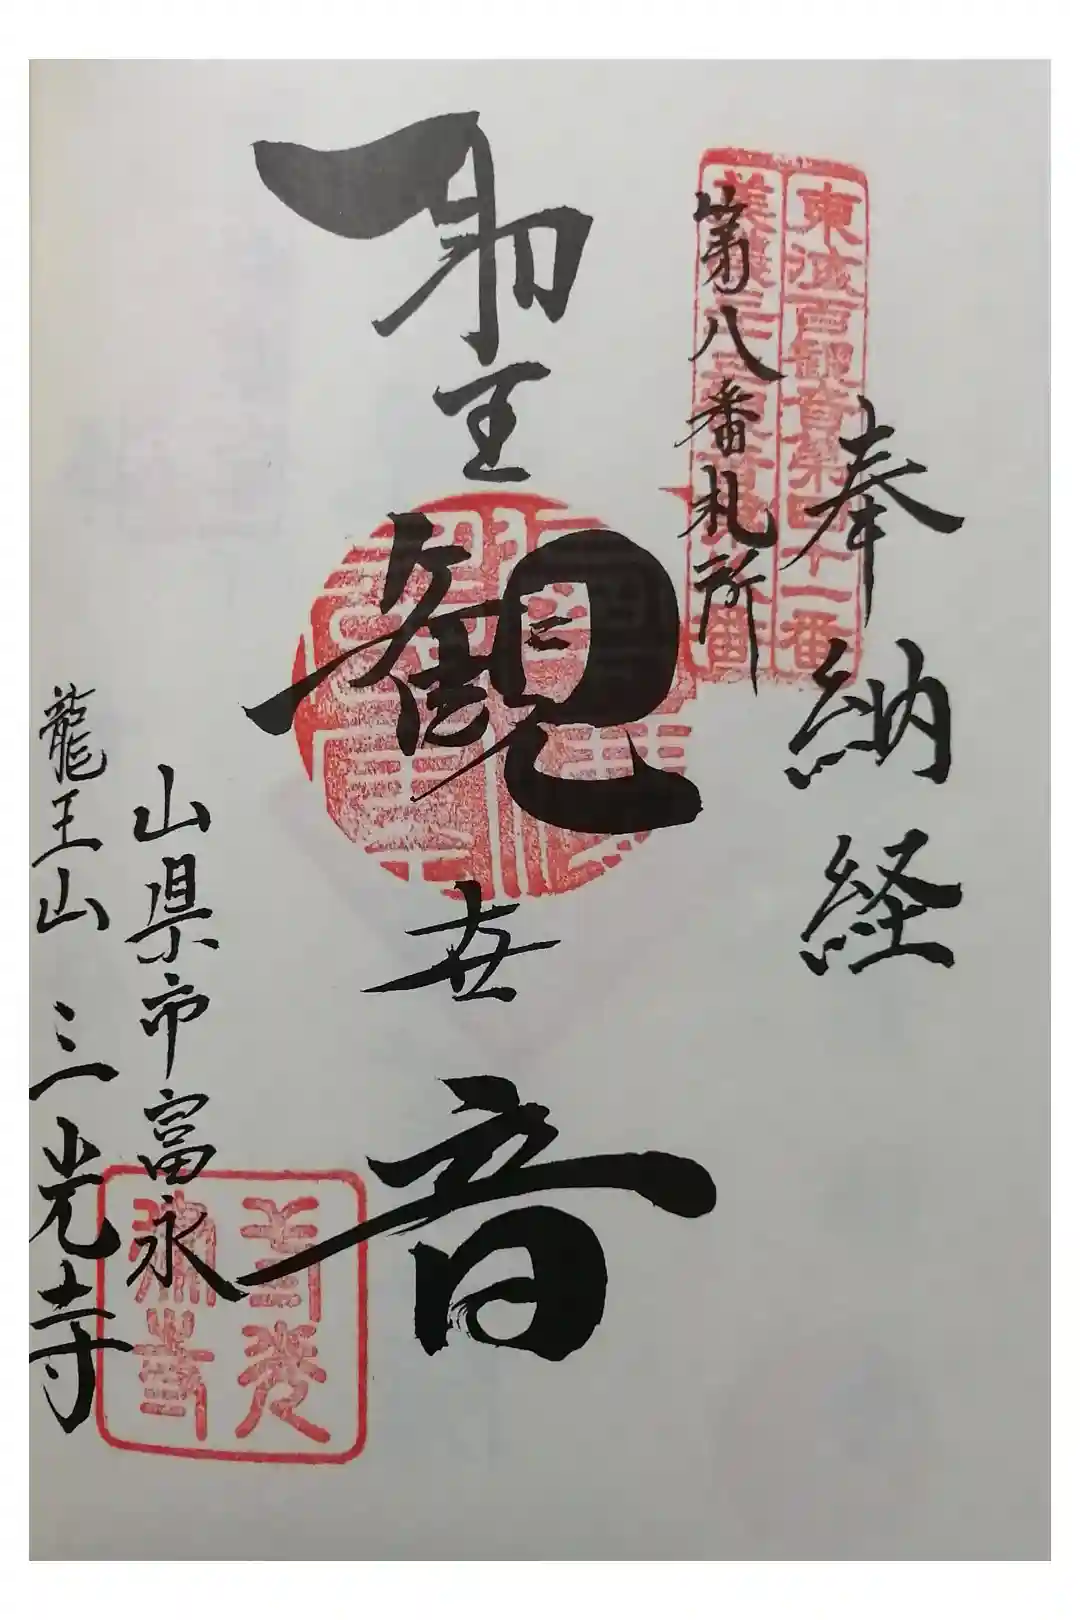 奉納経
東海百観音第四十一番
美濃三十三観音第八番
第八番札所
聖観世音
山県市富永
龍王山 三光寺